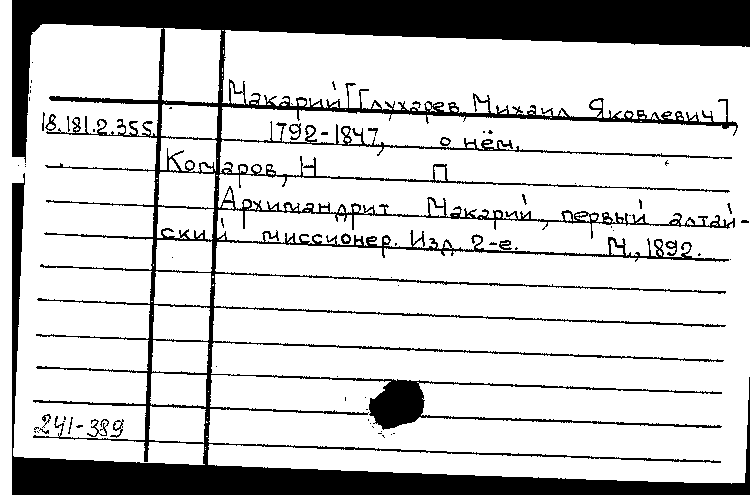 Макарий [Глухарев, Михаил Яковлевич],
18.181.2.355. 1792-1847, о нём.
Комаров, Н П
Архимандрит Макарий, первый алтай-
ский миссионер. Изд. 2-е. М., 1892.
241-389